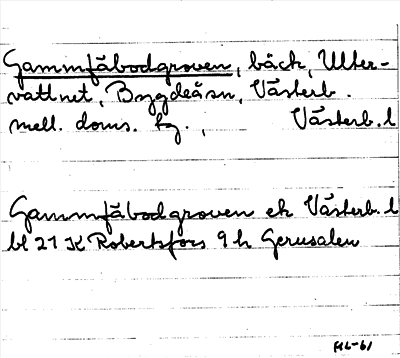 Gammfäbodgroven, bäck, Ulter-
vattnet, Bygdeåsn, Västerb.
mell. doms. tg., Västerb. l
Gammfäbodgroven ek Västerb. l
bl 21 K Robertsfors 9 h Gerusalen
ML-61